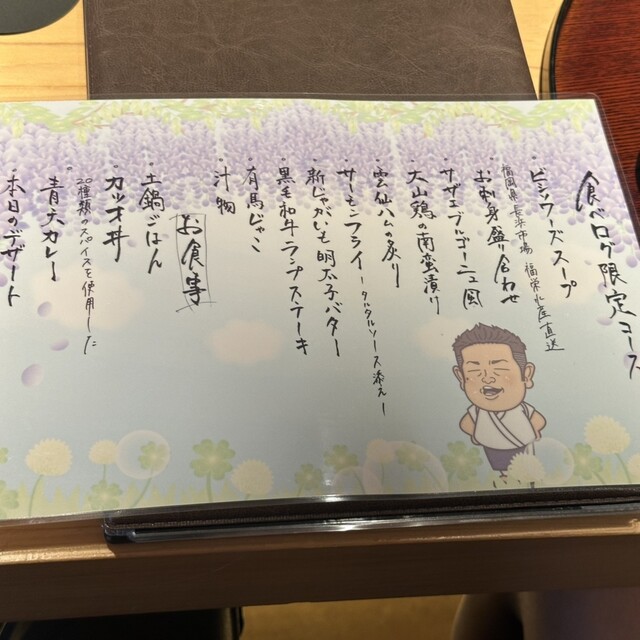 食べログ限定コース
・ビシソワーズスープ
福岡県長浜市場 福栄水産直送
・お刺身盛り合わせ
・サザエブルゴーニュ風
・大山鶏の南蛮漬け
・雲仙ハムの炙り
・サーモンフライ ータルタルソース添えー
・新じゃがいも明太子バター
・黒毛和牛ランプステーキ
・有馬じゃこ
・汁物
お食事
・土鍋ごはん
・カツオ丼
20種類のスパイスを使用した
・青大カレー
・本日のデザート